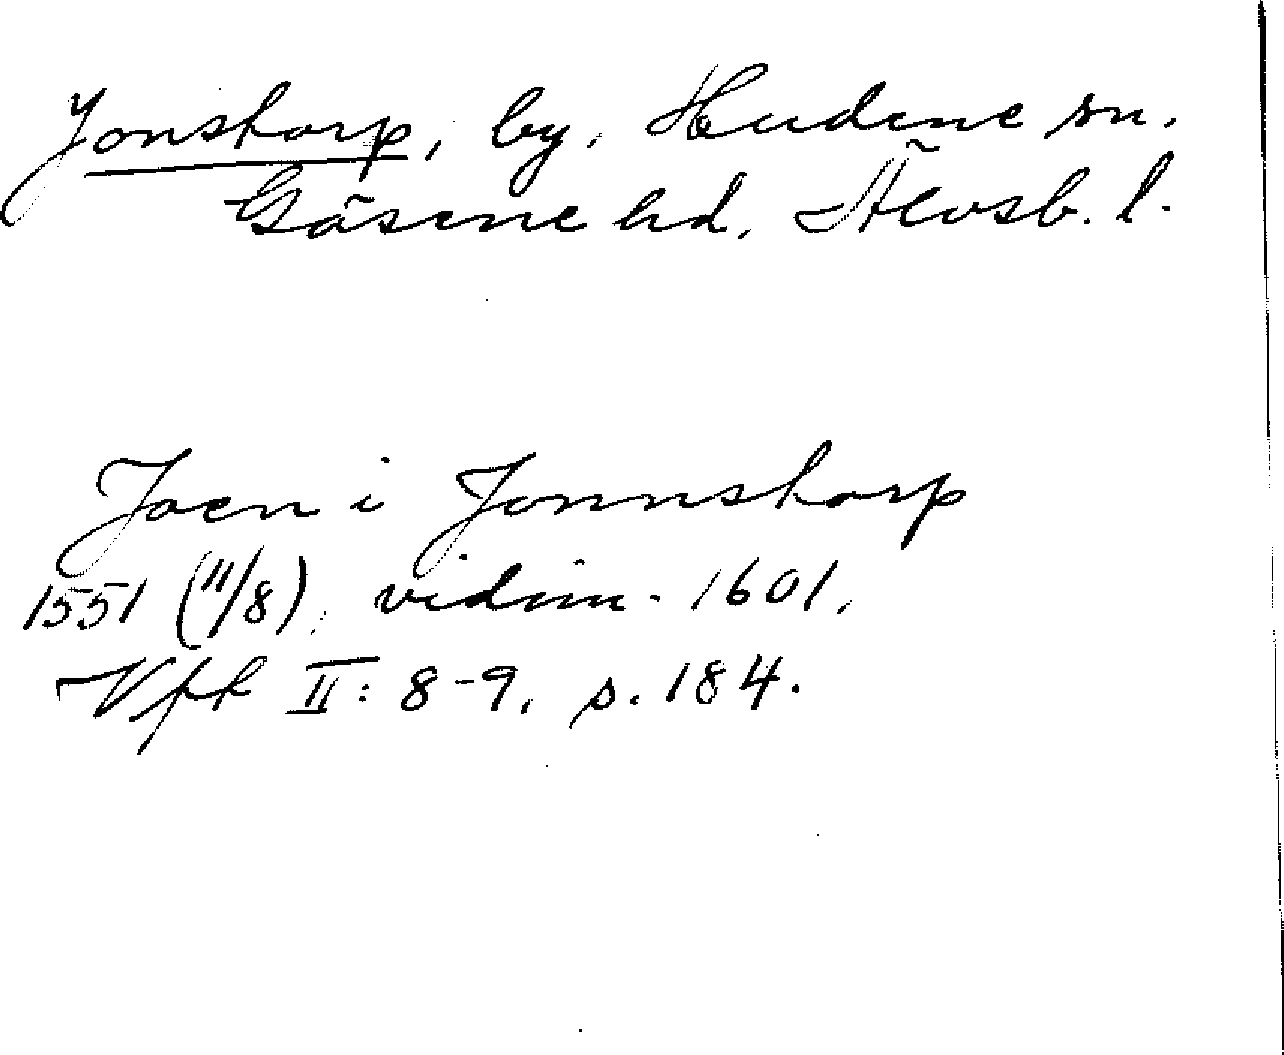 Jonstorp, by, Hudene sn.
Gäsene hd, Älvsb. l.
Joen i Jonnstorp
1551 (11/8), vidim. 1601,
Vfk II: 8-9, s. 184.